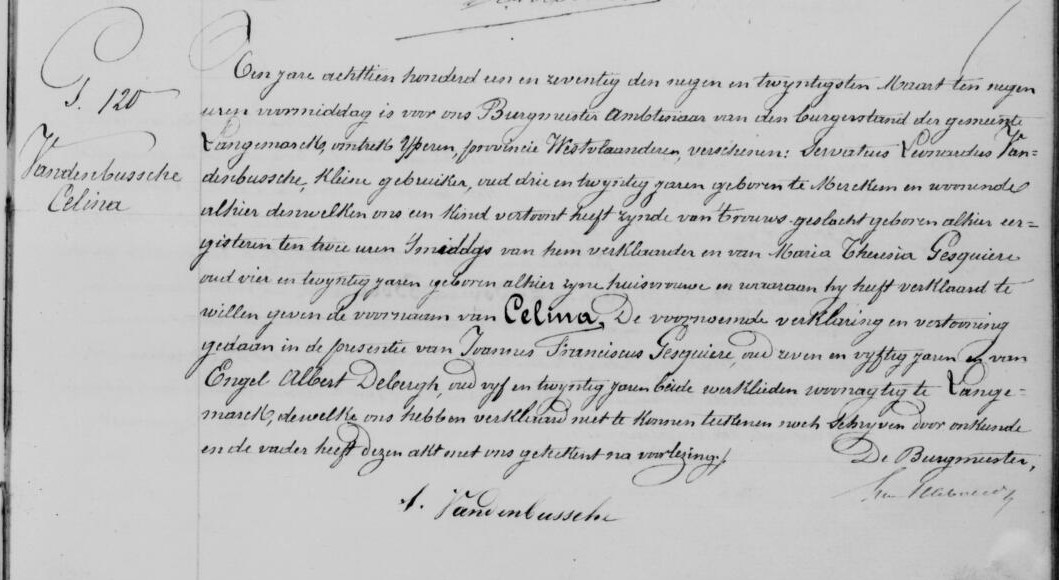 G. 120
Vandenbussche
Celina
Ten jare achttien honderd een en zeventig den negen en twyntigsten Maart ten negen
uren voormiddag is voor ons Burgmeester Ambtenaar van den burgerstand der gemeente
Langemarck, omtrek Yperen, provincie Westvlaanderen, verschenen: Servatius Leonardus Van=
denbussche, kleine gebruiker, oud drie en twyntig jaren geboren te Merckem en woonende
alhier denwelken ons een kind vertoont heeft zynde van 't vrouws-geslacht geboren alhier eer=
gisteren ten twee uren 's middags van hem verklaarder en van Maria Theresia Gesquiere
oud vier en twyntig jaren geboren alhier zyne huisvrouwe en waaraan hy heeft verklaard te
willen geven de voornaam van Celina, De voornoemde verklaring en vertooning
gedaan in de presentie van Joannes Franciscus Gesquiere, oud zeven en vyftig jaren en van
Engel Albert Debergh, oud vyf en twyntig jaren beide werklieden woonagtig te Lange=
marck, dewelke ons hebben verklaard niet te konnen teekenen noch schryven door onkunde
en de vader heeft dezen akt met ons geteekent na voorlezing./
De Burgmeester,
S. Vandenbussche